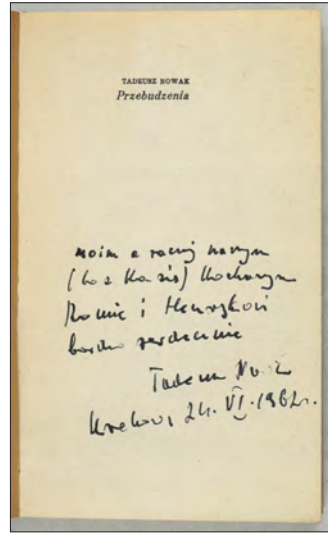 TADEUSZ NOWAK
Przebudzenia
moim a raczej naszym
(bo z Kasią) Kochanym
i Henrykowi
bardzo serdecznie
Tadeusz Nowak
Kraków, 24. VI. 1962 r.